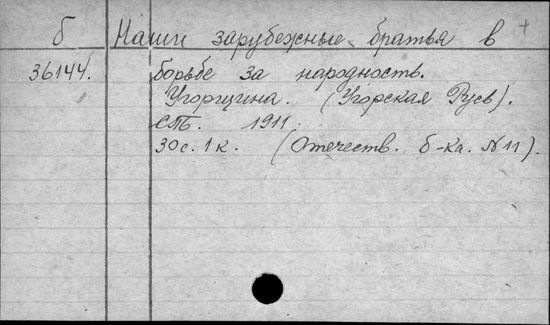 б Наши зарубежные братья в +
36144. борьбе за народность.
Угорщина. (Угорская Русь).
СПб. 1911.
30с. 1к. (Отечеств. б-ка. № 11).